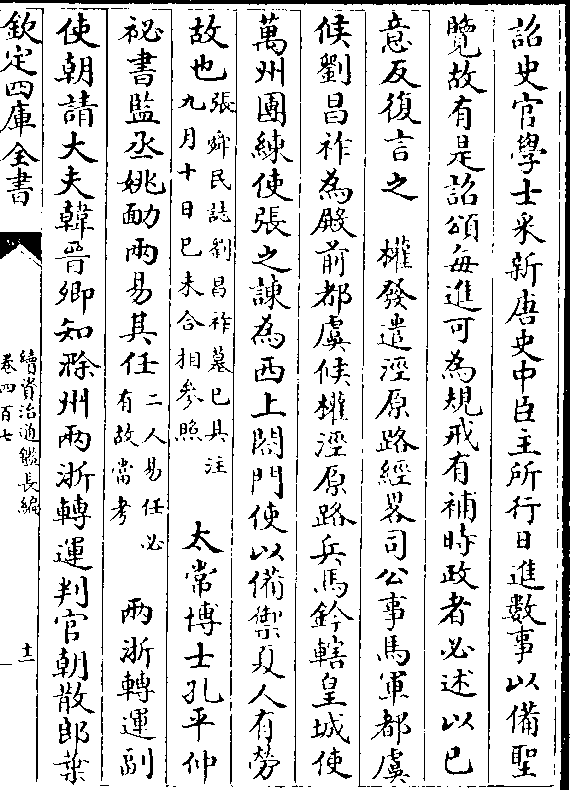 詔史官學士采新唐史中臣主所行日進數事以備聖
覽故有是詔頌每進可為規戒有補時政者必述以已
意反復言之　權發遣涇原路經畧司公事馬軍都虞
候劉昌祚為殿前都虞候權涇原路兵馬鈐轄皇城使
萬州團練使張之諫為西上閤門使以備禦夏人有勞
故也張舜民誌劉昌祚墓已具注
九月十日已未合相參照　太常博士孔平仲
祕書監丞姚勔兩易其任二人易任必
有故當考　兩浙轉運副
使朝請大夫韓晉卿知滁州兩浙轉運判官朝散郎葉
欽定四庫全書
續資治通鑑長編
卷四百七
十二